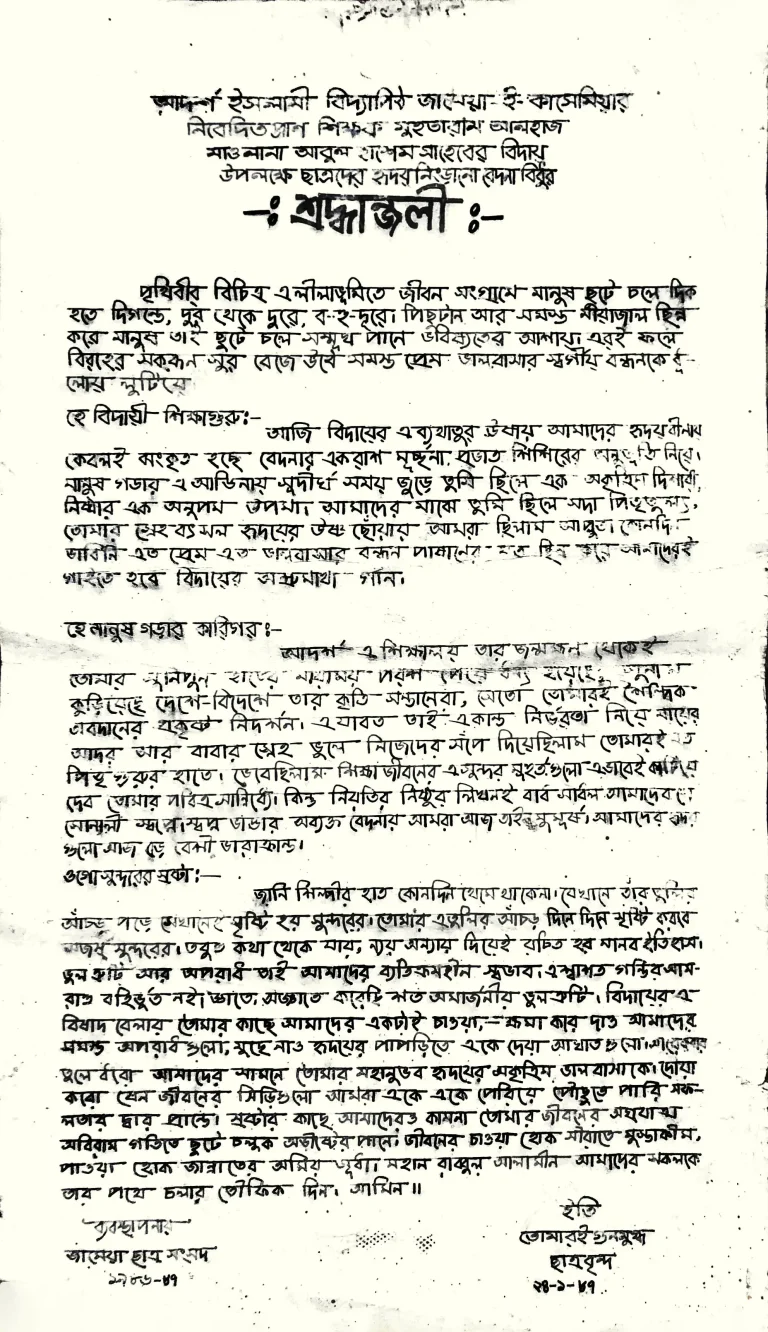 আদর্শ ইসলামী বিদ্যাপিঠ জামেয়া-ই-কাসেমিয়ার
নিবেদিতপ্রাণ শিক্ষক মুহতারাম আলহাজ
মাওলানা আবুল হাশেম সাহেবের বিদায়
উপলক্ষে ছাত্রদের হৃদয় নিংড়ানো বেদনা বিধুর
-: শ্রদ্ধাঞ্জলী :-
পৃথিবীর বিচিত্র এ লীলাভূমিতে জীবন সংগ্রামে মানুষ ছুটে চলে দিক
হতে দিগন্তে, দুর থেকে দুরে, ব-হু-দূরে। পিছুটান আর সমস্ত মায়াজাল ছিন্ন
করে মানুষ তাই ছুটে চলে সম্মুখ পানে ভবিষ্যতের আশায়। এরই ফলে
বিরহের সকরুন সুর বেজে উঠে সমস্ত প্রেম ভালবাসার স্বর্গীয় বন্ধনকে ধূ-
লোয় লুটিয়ে
হে বিদায়ী শিক্ষাগুরু:-
আজি বিদায়ের এ ব্যথাতুর ঊষায় আমাদের হৃদয়বীনায়
কেবলই ঝংকৃত হচ্ছে বেদনার একরাশ মূর্চ্ছনা, প্রভাত শিশিরের অনুভূতি নিয়ে।
মানুষ গড়ার এ আঙিনায় সুদীর্ঘ সময় জুড়ে তুমি ছিলে এক অকৃত্রিম দিশারী,
নিষ্ঠার এক অনুপম উপমা। আমাদের মাঝে তুমি ছিলে সদা পিতৃতুল্য,
তোমার স্নেহ বৎসল হৃদয়ের উষ্ণ ছোঁয়ায় আমরা ছিলাম আপ্লুত। কোনদিন
ভাবিনি এত প্রেম এত ভালবাসার বন্ধন পাষানের মত ছিন্ন করে আমাদেরই
গাইতে হবে বিদায়ের অশ্রুমাখা গান।
হে মানুষ গড়ার কারিগর:-
আদর্শ এ শিক্ষালয় তার জন্মক্ষন থেকেই
তোমার সুনিপুন হাতের মায়াময় পরশ পেয়ে ধন্য হয়েছে, সুনাম
কুড়িয়েছে দেশে-বিদেশে তার কৃতি সন্তানেরা, সেতো তোমারই
অবদানের প্রকৃষ্ট নিদর্শন। এ যাবত তাই একান্ত নির্ভরতা নিয়ে মায়ের
আদর আর বাবার স্নেহ ভুলে নিজেদের সঁপে দিয়েছিলাম তোমারই মত
পিতৃ গুরুর হাতে। ভেবেছিলাম শিক্ষা জীবনের এ সুন্দর মুহূর্তগুলো এভাবেই কাটিয়ে
দেব তোমার পবিত্র সান্নিধ্যে। কিন্তু নিয়তির নিষ্ঠুর লিখনই বাধ সাধল আমাদের সে
সোনালী স্বপ্নে। স্বপ্ন ভাঙার অব্যক্ত বেদনায় আমরা আজ তাই মুমূর্ষ। আমাদের হৃদয়
গুলো আজ বড় বেশী ভারাক্রান্ত।
ওগো সুন্দরের স্রষ্টা:-
জানি শিল্পীর হাত কোনদিন থেমে থাকেনা। যেখানে তাঁর তুলির
আঁচড় পড়ে সেখানেই সৃষ্টি হয় সুন্দরের। তোমার এ তুলির আঁচড় দিনে দিনে সৃষ্টি করবে
অজস্র সুন্দরের। তবুও কথা থেকে যায়, ন্যায় অন্যায় দিয়েই রচিত হয় মানব ইতিহাস।
ভুল ত্রুটি আর অপরাধ তাই আমাদের ব্যতিক্রমহীন স্বভাব। এ শ্বাশত গন্ডির আম-
রাও বহির্ভূত নই। জ্ঞাতে, অজ্ঞাতে করেছি শত অমার্জনীয় ভুলত্রুটি। বিদায়ের এ
বিষাদ বেলায় তোমার কাছে আমাদের একটাই চাওয়া,- ক্ষমা করে দাও আমাদের
সমস্ত অপরাধ গুলো, মুছে নাও হৃদয়ের পাপড়িতে একে দেয়া আঘাত গুলো। আরেকবার
তুলে ধরো আমাদের সামনে তোমার মহানুভব হৃদয়ের অকৃত্রিম ভালবাসাকে। দোয়া
করো যেন জীবনের সিড়িগুলো আমরা একে একে পেরিয়ে পৌছুতে পারি সফ-
লতার দ্বার প্রান্তে। স্রষ্টার কাছে আমাদেরও কামনা তোমার জীবনের অগ্রযাত্রা
অবিরাম গতিতে ছুটে চলুক অভীষ্টের পানে। জীবনের চাওয়া হোক সীরাতে মুস্তাকীম,
পাওয়া হোক জান্নাতের অমিয় সুধা। মহান রাব্বুল আলামীন আমাদের সকলকে
তার পথে চলার তৌফিক দিন। আমিন॥
ইতি
তোমারই গুনমুগ্ধ
ছাত্রবৃন্দ
২৪-১-৮৭
ব্যবস্থাপনায়
জামেয়া ছাত্র সংসদ
১৯৮৬-৮৭